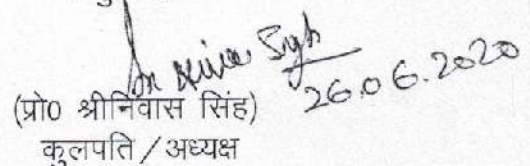 26.06.2020
(प्रो0 श्रीनिवास सिंह)
कुलपति / अध्यक्ष